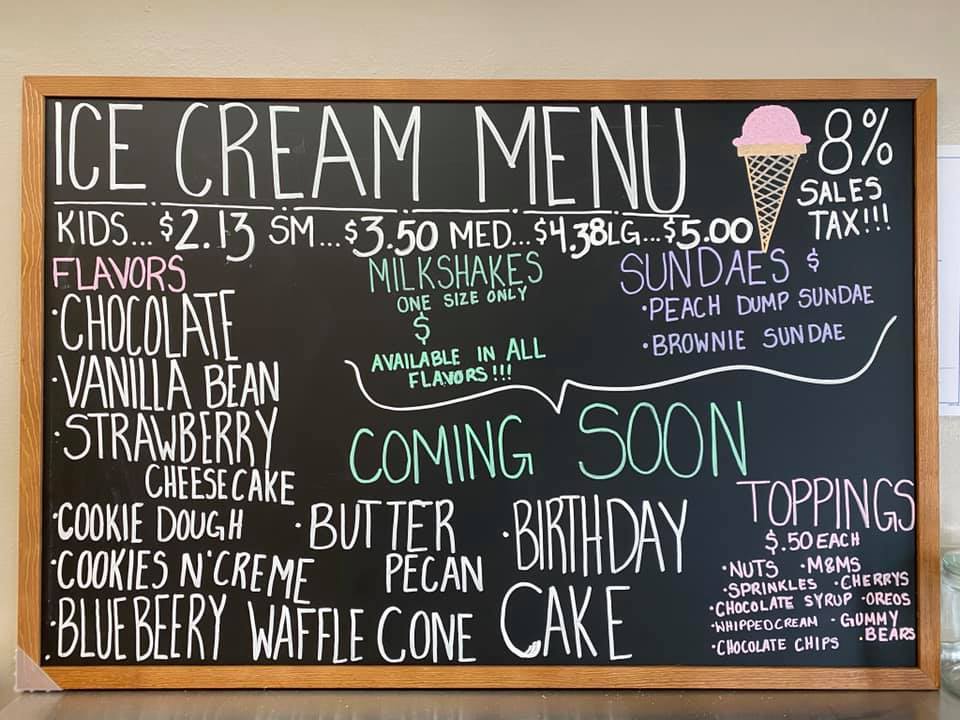 ICE CREAM MENU
8%
SALES
TAX!!!
KIDS...$2.13 SM...$3.50 MED...$4.38 LG...$5.00
FLAVORS
·CHOCOLATE
·VANILLA BEAN
·STRAWBERRY
CHEESECAKE
·COOKIE DOUGH
·COOKIES N'CREME
·BLUEBEERY WAFFLE CONE
·BUTTER
PECAN
·BIRTHDAY
CAKE
MILKSHAKES
ONE SIZE ONLY
$
AVAILABLE IN ALL
FLAVORS!!!
SUNDAES $
·PEACH DUMP SUNDAE
·BROWNIE SUNDAE
COMING SOON
TOPPINGS
$.50 EACH
·NUTS ·M&MS
·SPRINKLES ·CHERRYS
·CHOCOLATE SYRUP ·OREOS
·WHIPPED CREAM ·GUMMY
BEARS
·CHOCOLATE CHIPS